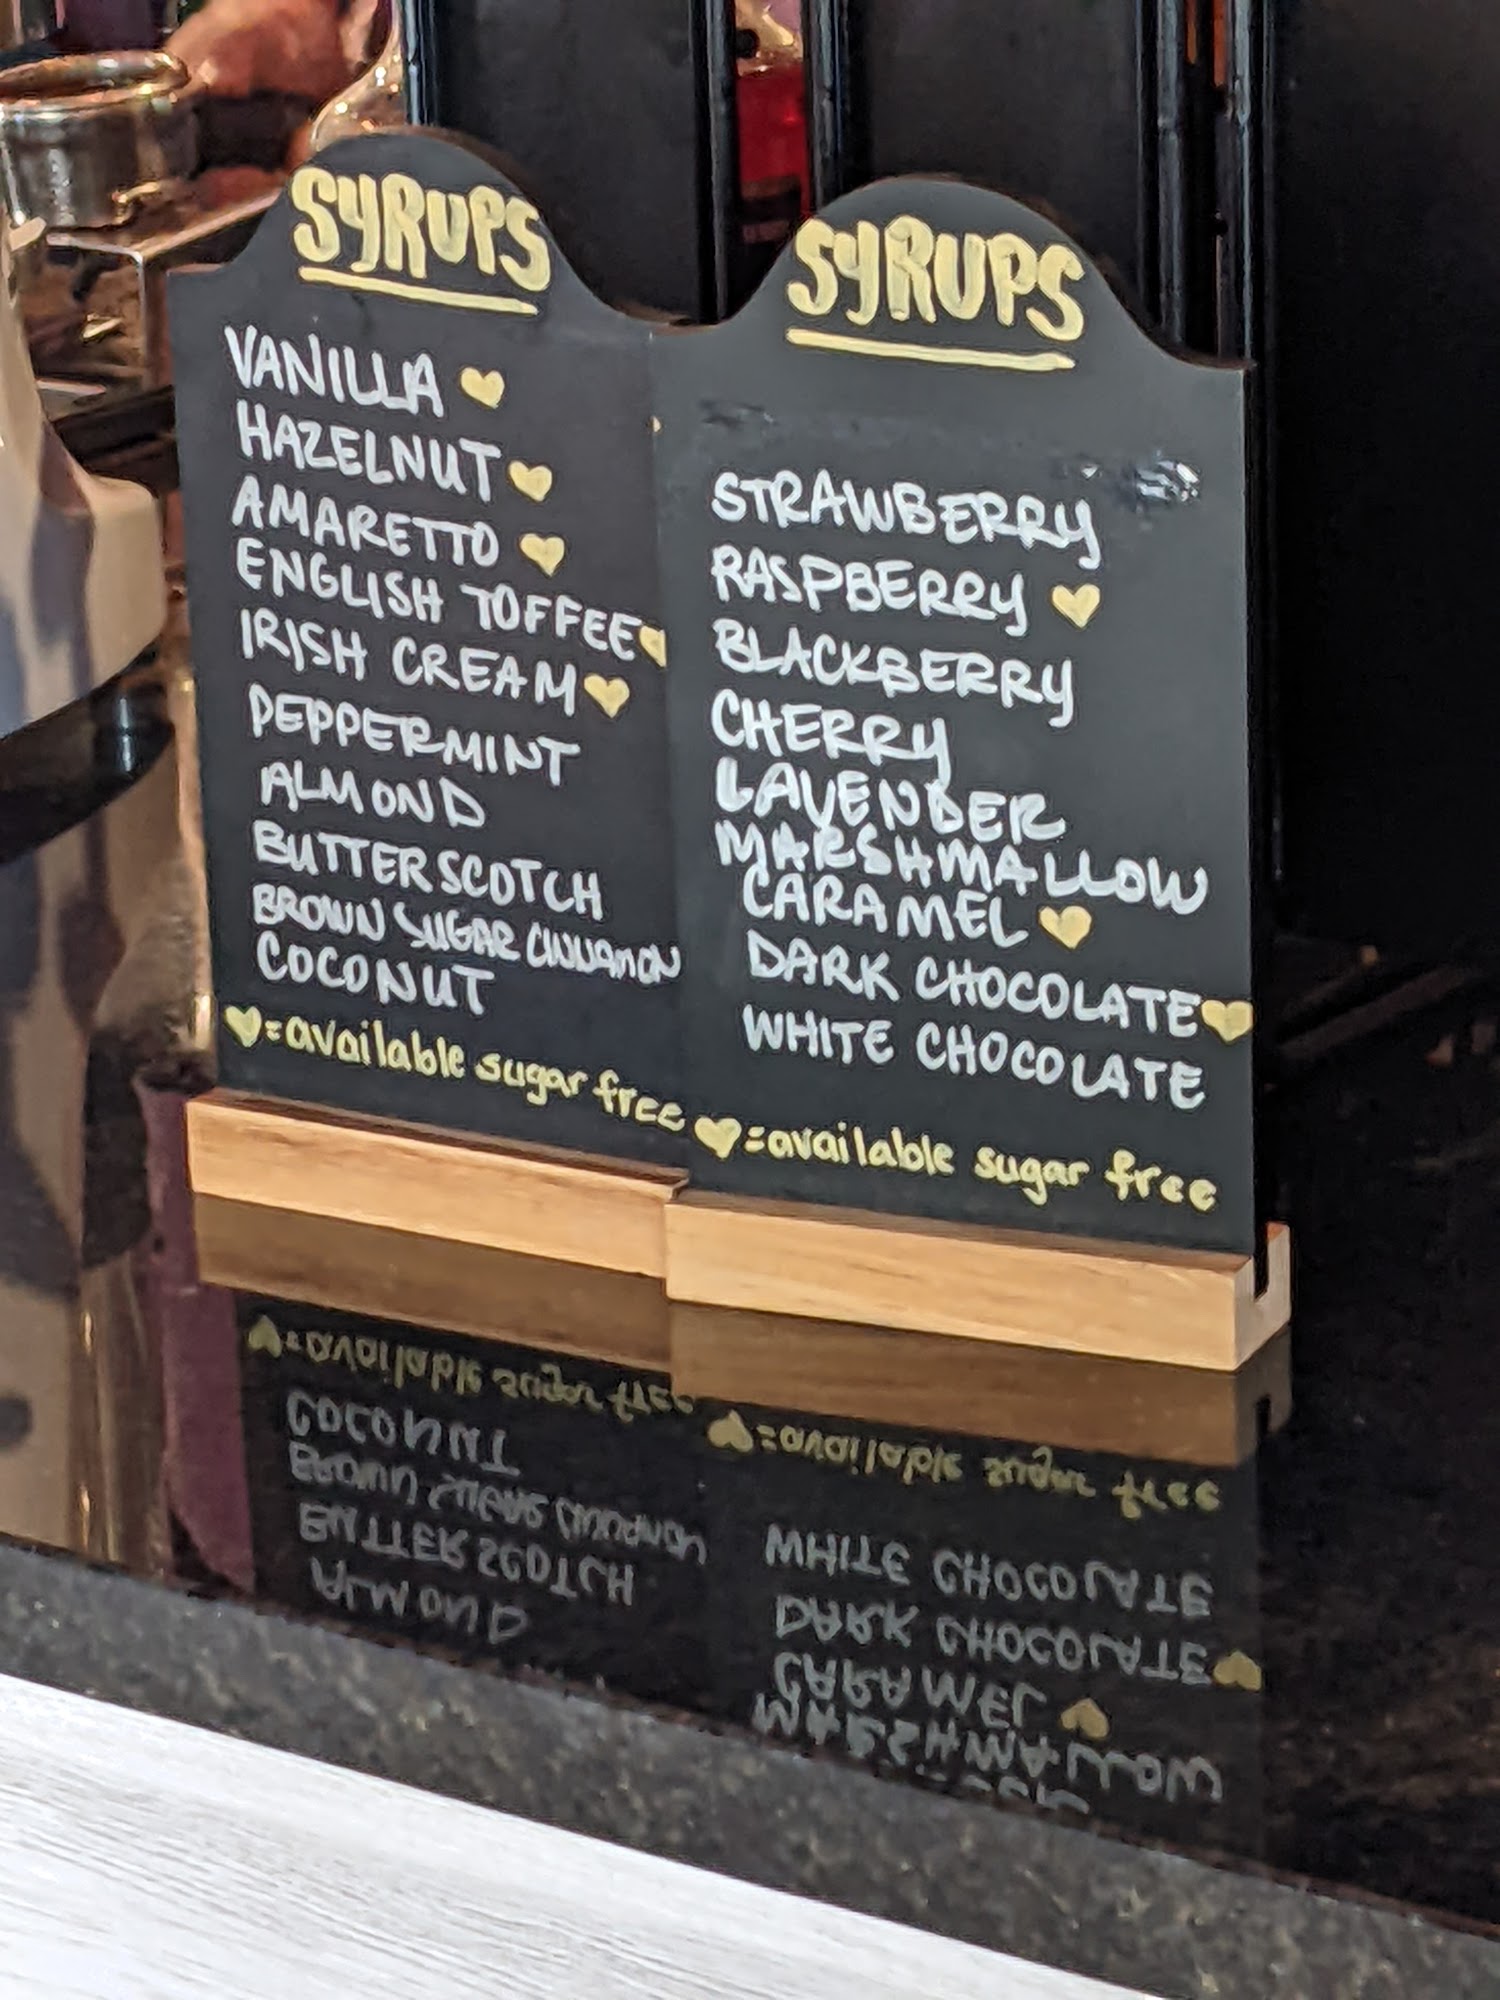 SYRUPS
VANILLA ♥
HAZELNUT ♥
AMARETTO ♥
ENGLISH TOFFEE ♥
IRISH CREAM ♥
PEPPERMINT
ALMOND
BUTTERSCOTCH
BROWN SUGAR CINNAMON
COCONUT
♥=available sugar free
SYRUPS
STRAWBERRY
RASPBERRY ♥
BLACKBERRY
CHERRY
LAVENDER
MARSHMALLOW
CARAMEL ♥
DARK CHOCOLATE ♥
WHITE CHOCOLATE
♥=available sugar free